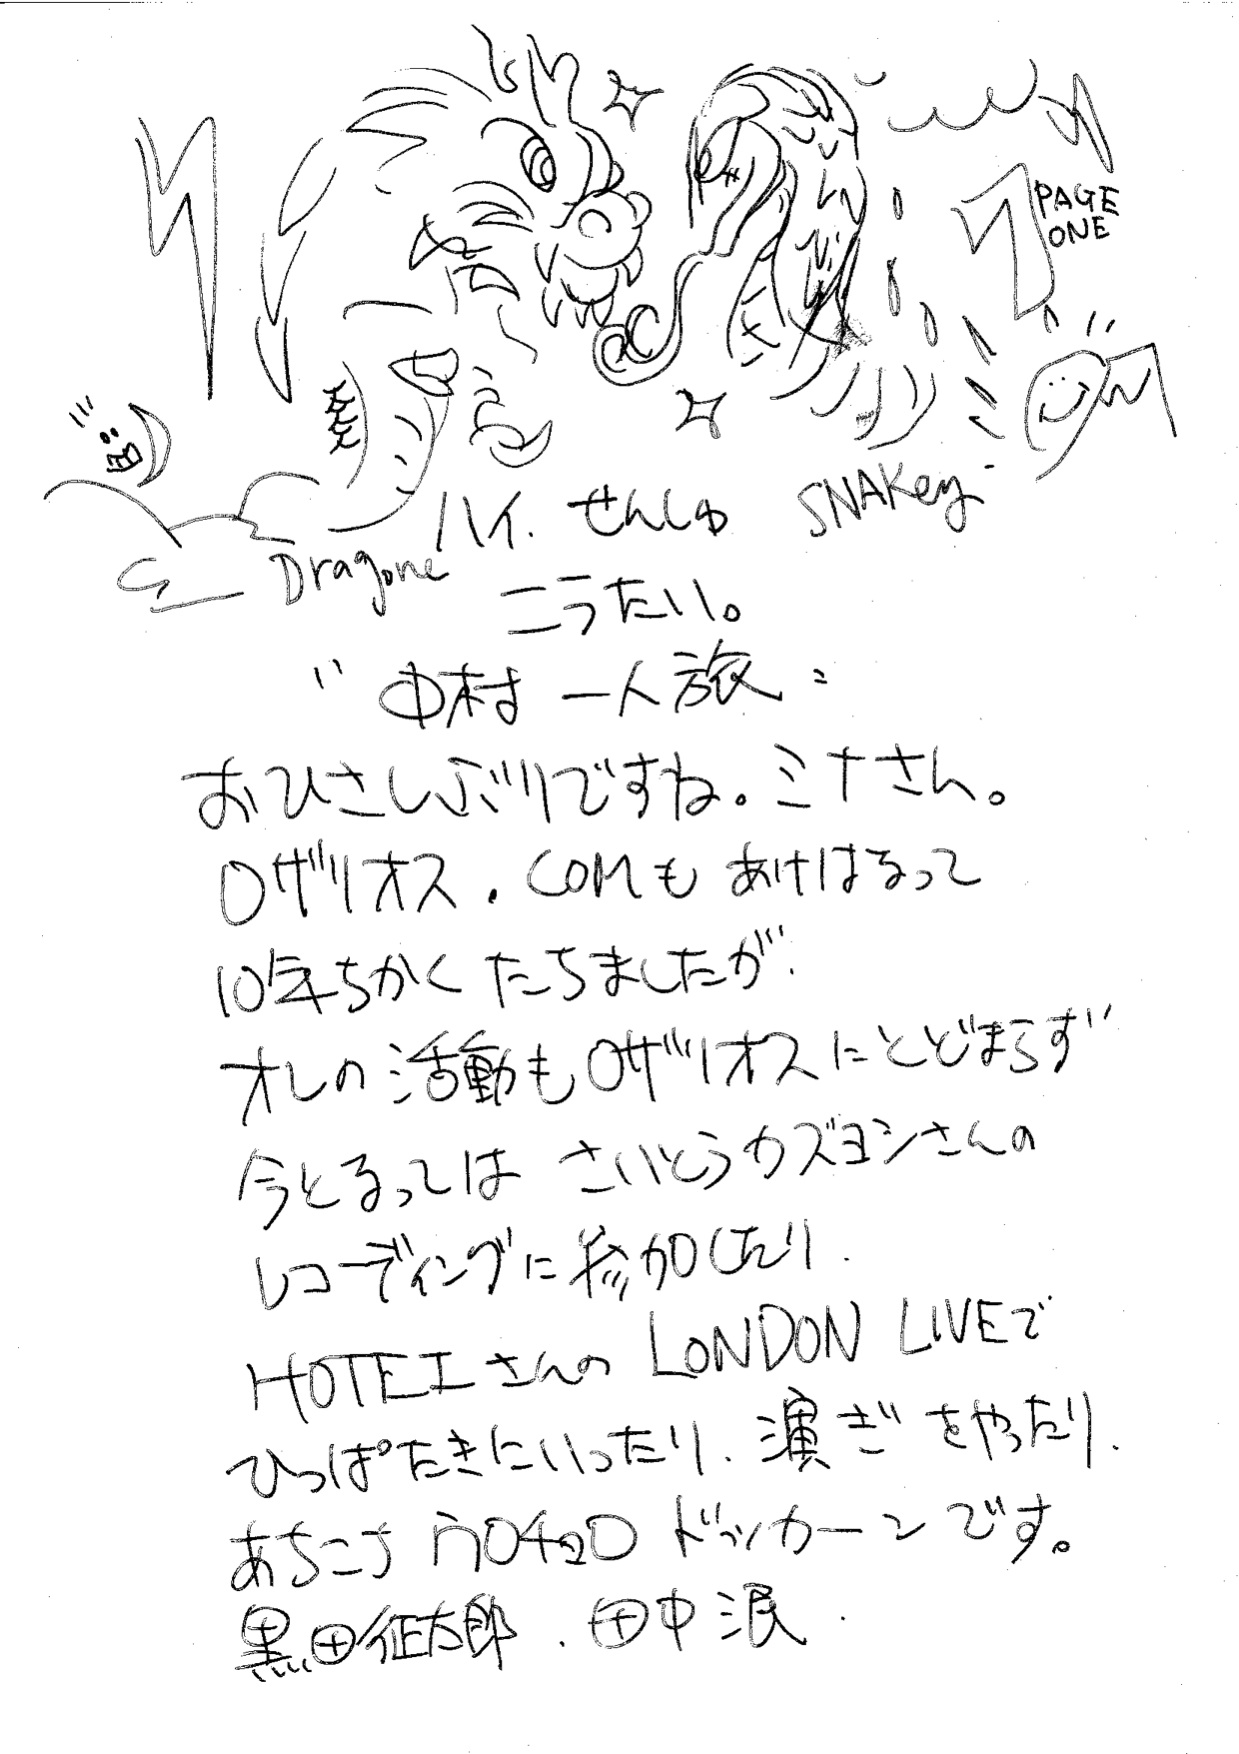 PAGE
ONE
SNAKey
ハイ. せんしゅ
Dragone
こうたい。
"中村 一人旅"
おひさしぶりですね。ミナさん。
ロザリオス.COMも あけはなって
10年ちかく たちましたが.
オレの 活動も ロザリオスにとどまらず
今となっては さいとうカズヨシさんの
レコーディングに 参加したり.
HOTEIさんの LONDON LIVEで
ひっぱたきにいったり. 演ぎをやったり.
あちこち ウロチョロ ドッカーンです。
黒田征太郎. 田中泯.